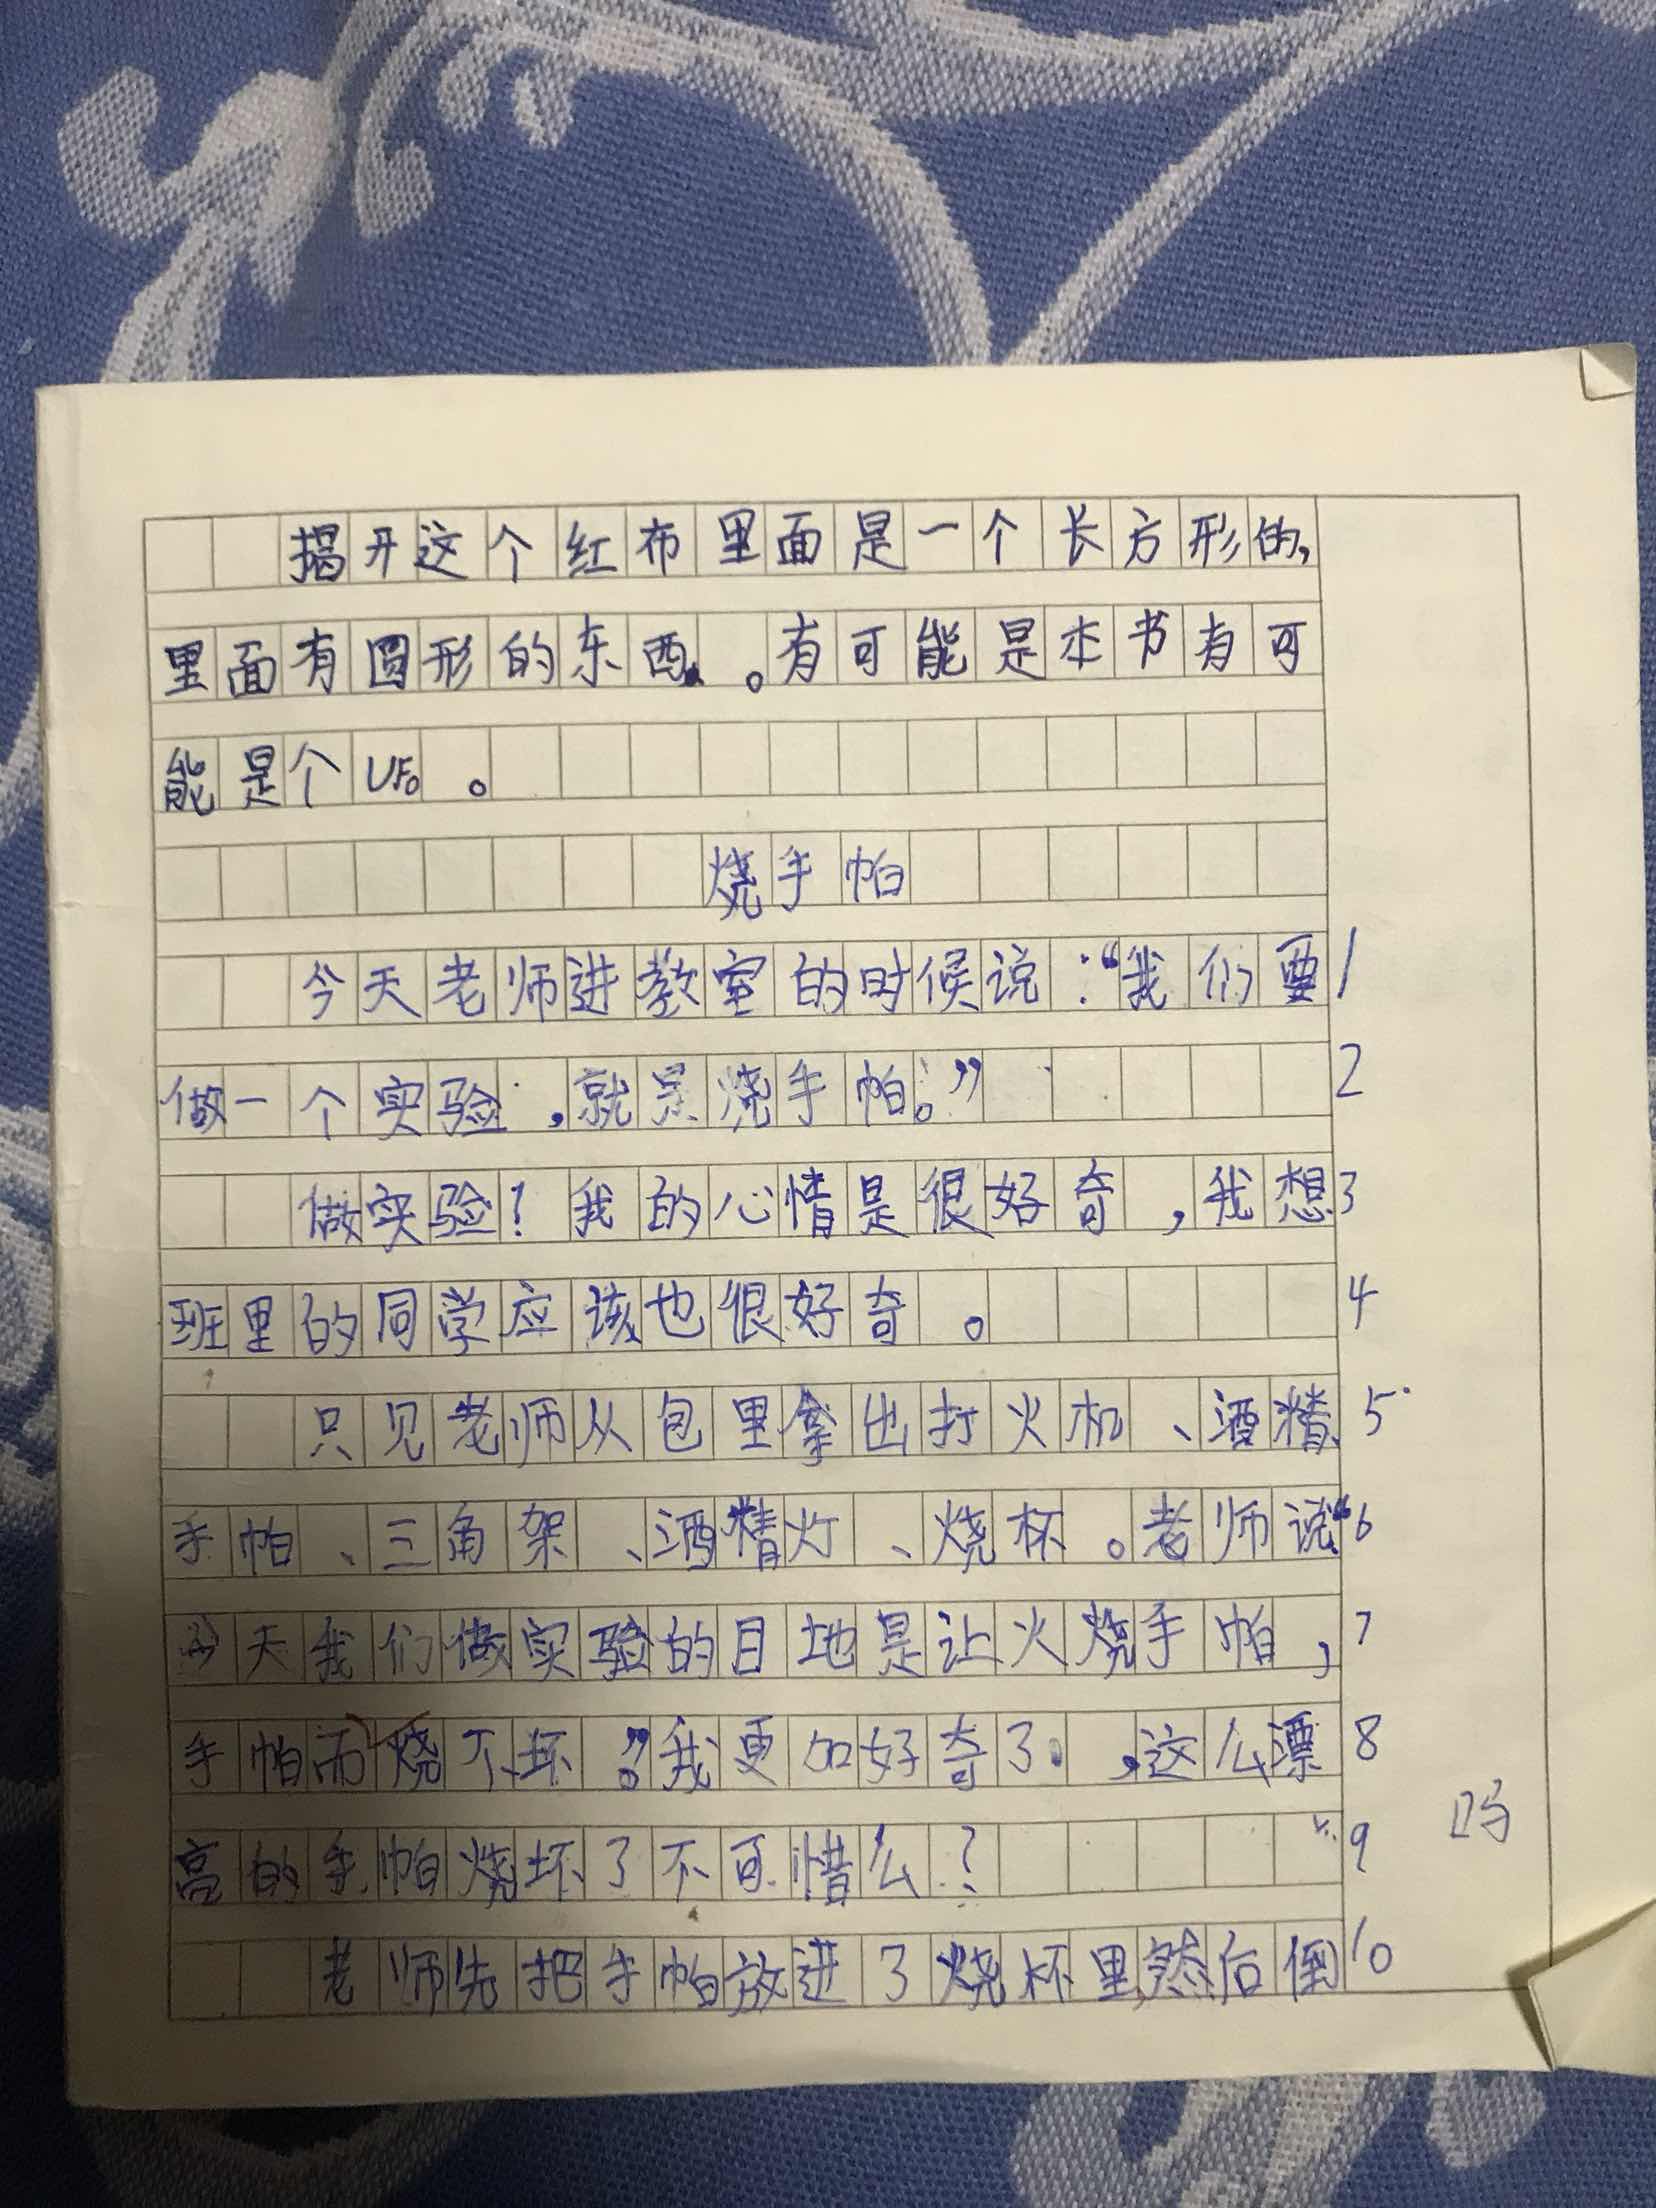 揭开这个红布里面是一个长方形的,
里面有圆形的东西。有可能是本书有可
能是个UFO。
烧手帕
今天老师进教室的时候说:“我们要 1
做一个实验,就是烧手帕。” 2
做实验!我的心情是很好奇,我想 3
班里的同学应该也很好奇。 4
只见老师从包里拿出打火机、酒精、 5
手帕、三角架、酒精灯、烧杯。老师说“ 6
今天我们做实验的目地是让火烧手帕, 7
手帕而烧不坏。”我更加好奇了,这么漂 8
亮的手帕烧坏了不可惜么? 9
吗
老师先把手帕放进了烧杯里,然后倒 10